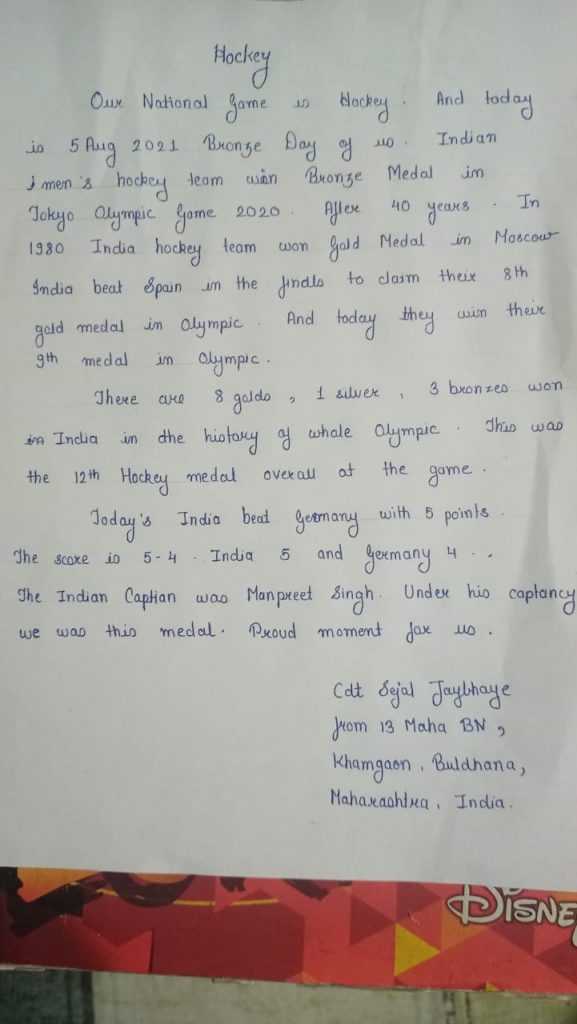 Hockey
Our National Game is Hockey. And today
is 5 Aug 2021 Bronze Day of us. Indian
men's hockey team win Bronze Medal in
Tokyo Olympic Game 2020. After 40 years. In
1980 India hockey team won Gold Medal in Moscow
India beat Spain in the finals to claim their 8th
gold medal in Olympic. And today they win their
9th medal in Olympic.
There are 8 golds, 1 silver, 3 bronzes won
India in the history of whale Olympic. This was
the 12th Hockey medal overall at the game.
Today's India beat Germany with 5 points.
The score is 5-4. India 5 and Germany 4..
The Indian Captian was Manpreet Singh. Under his captancy
we was this medal. Proud moment for us.
Cdt Sejal Jaybhaye
from 13 Maha BN,
Khamgaon, Buldhana,
Maharashtra, India.
DISNE